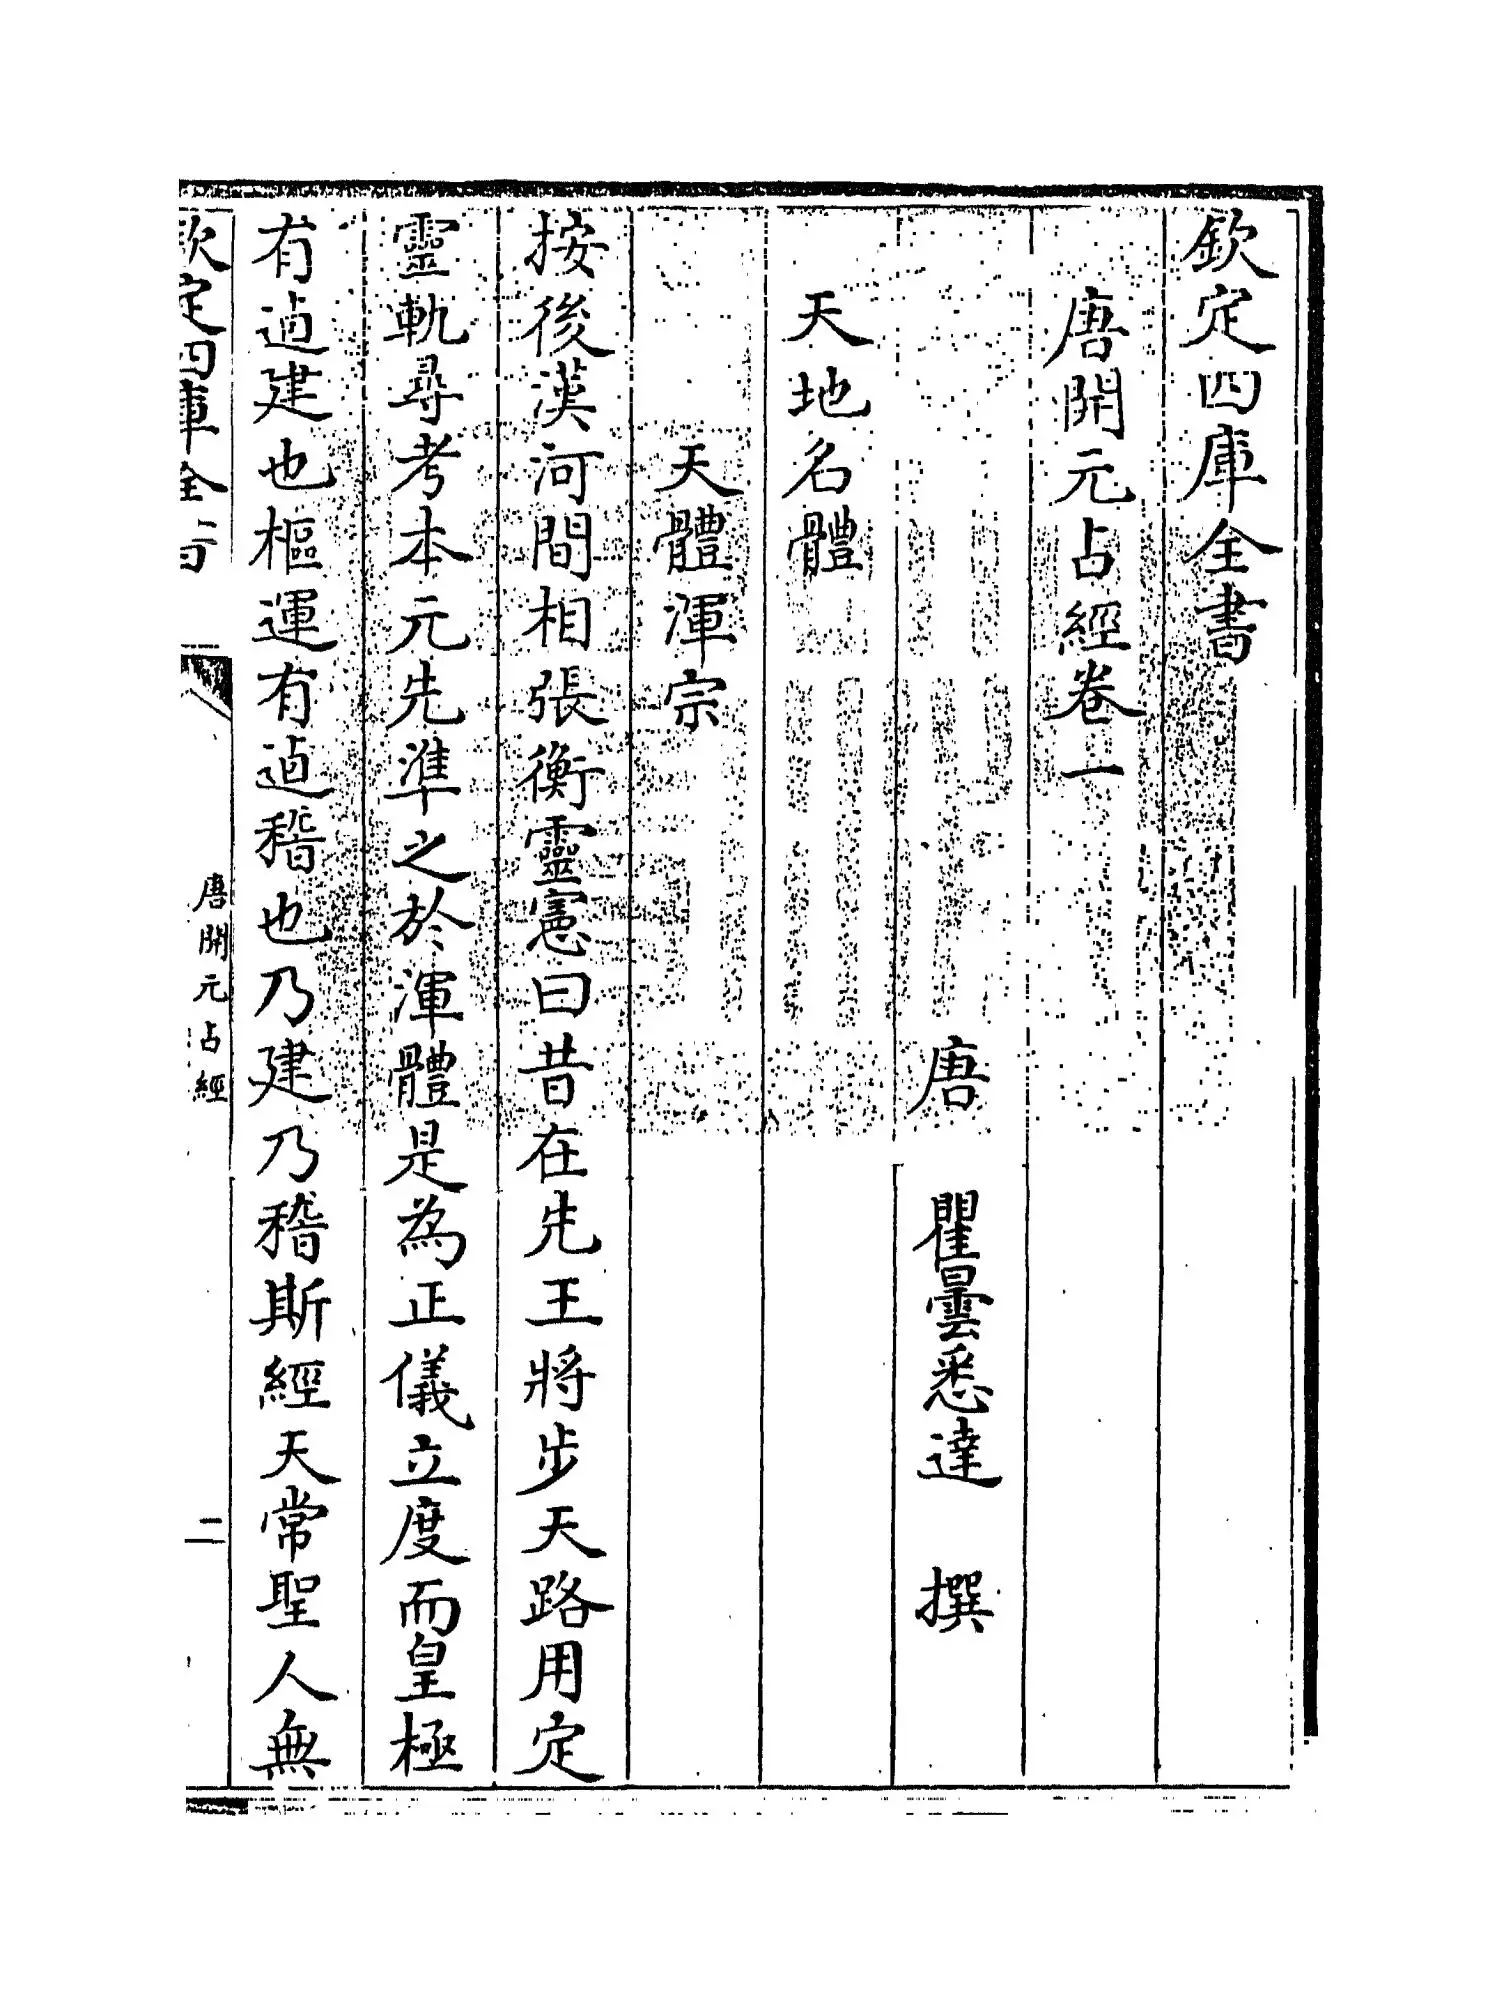 欽定四庫全書
唐開元占經卷一
唐 瞿曇悉達 撰
天地名體
天體渾宗
按後漢河間相張衡靈憲曰昔在先王將步天路用定
靈軌尋考本元先準之於渾體是為正儀立度而皇極
有逌建也樞運有逌稽也乃建乃稽斯經天常聖人無
欽定四庫全書
唐開元占經
二